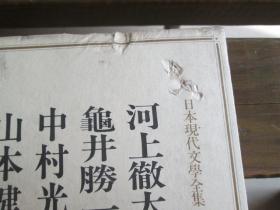 日本現代文學全集
河上徹太
龜井勝一
中村光
山本健